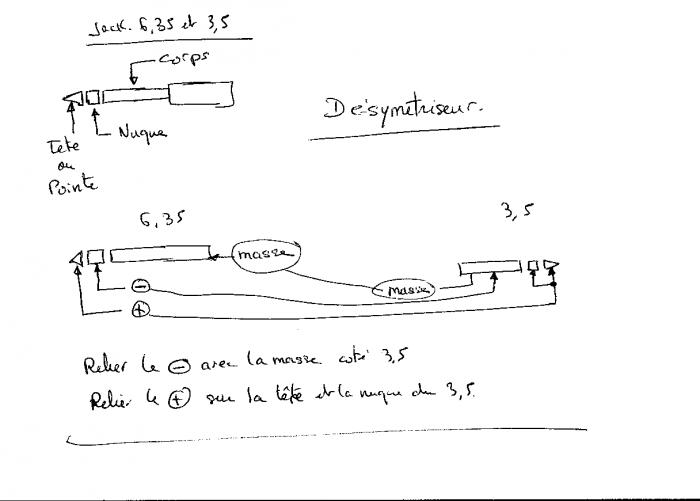 Jack. 6,35 et 3,5
Corps
Désymétriseur.
Nuque
Tête
ou
Pointe
6,35
3,5
masse
masse
-
+
Relier le - avec la masse coté 3,5
Relier le + sur la tête et la nuque du 3,5.